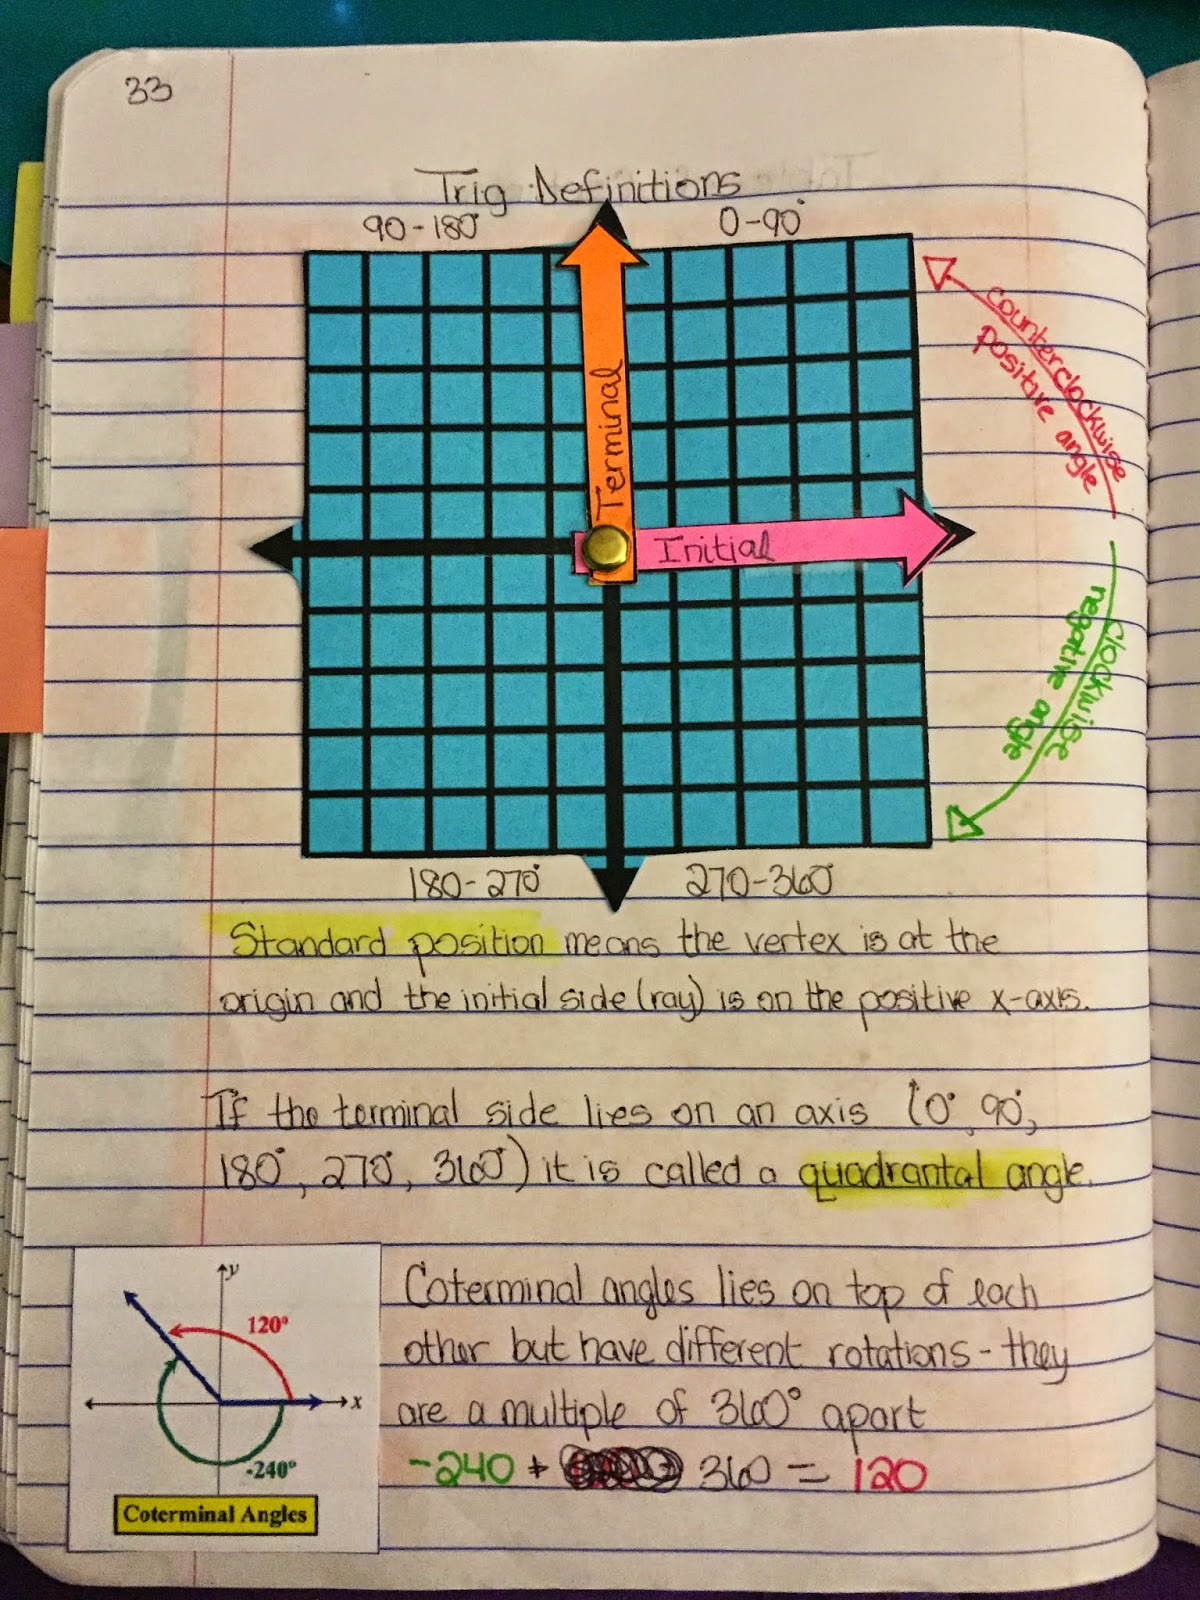 33
Trig Definitions
90-180°
0-90°
counterclockwise
positive angle
Terminal
Initial
clockwise
negative angle
180-270°
270-360°
Standard position means the vertex is at the
origin and the initial side (ray) is on the positive x-axis.
If the terminal side lies on an axis (0°, 90°,
180°, 270°, 360°) it is called a quadrantal angle.
y
120°
x
-240°
Coterminal Angles
Coterminal angles lies on top of each
other but have different rotations - they
are a multiple of 360° apart
-240 + 360 = 120